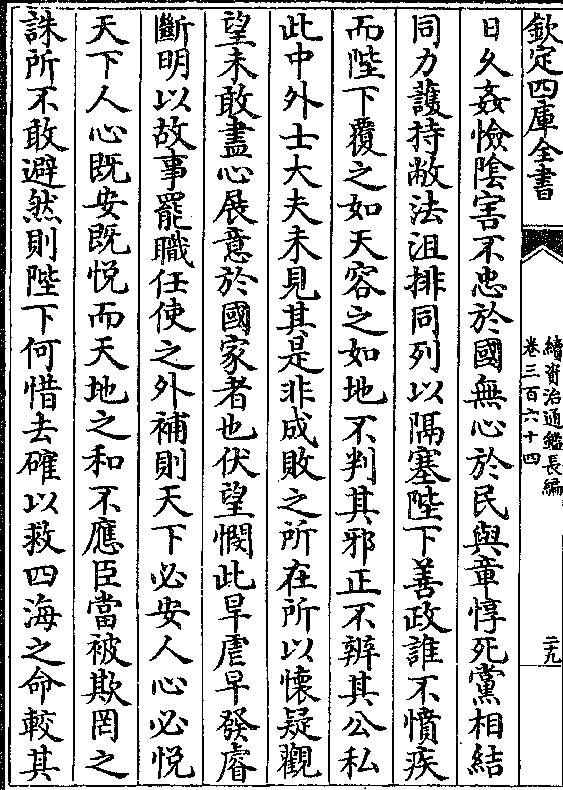 欽定四庫全書
續資治通鑑長編
卷三百六十四
二九
日久姦憸陰害不忠於國無心於民與章惇死黨相結
同力護持敝法沮排同列以隔塞陛下善政誰不憤疾
而陛下覆之如天容之如地不判其邪正不辨其公私
此中外士大夫未見其是非成敗之所在所以懷疑觀
望未敢盡心展意於國家者也伏望憫此旱虐早發睿
斷明以故事罷職任使之外補則天下必安人心必悦
天下人心既安既悦而天地之和不應臣當被欺罔之
誅所不敢避然則陛下何惜去確以救四海之命較其